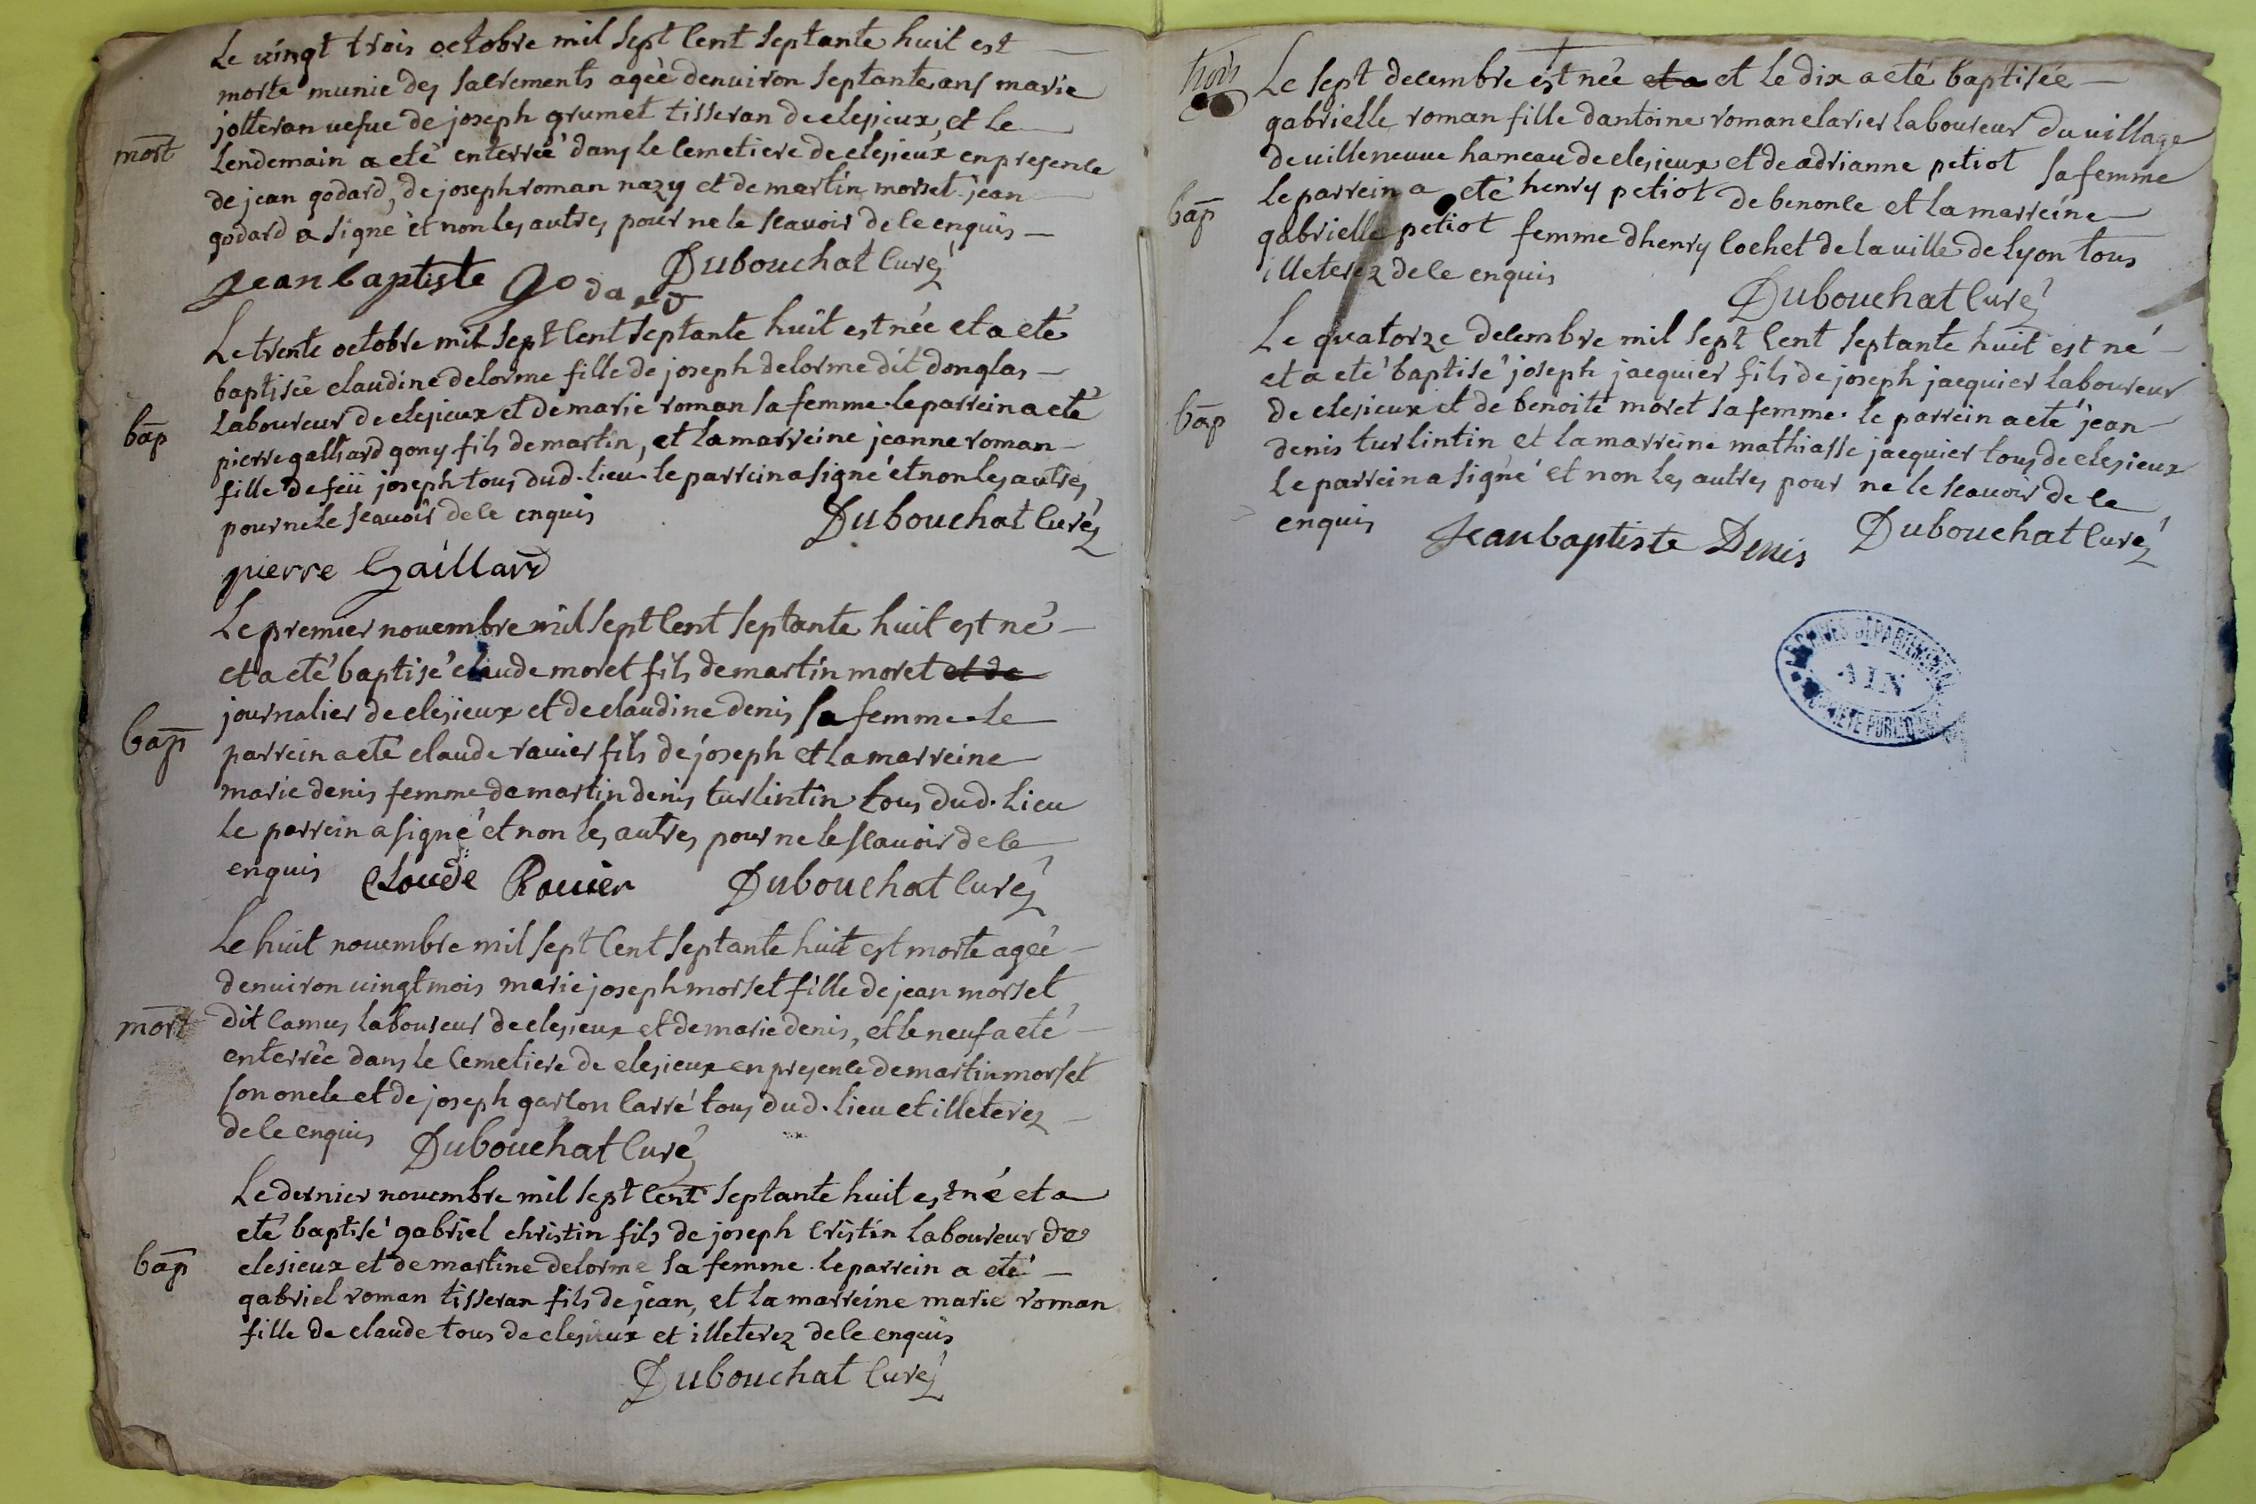 Le vingt trois octobre mil sept Cent Septante huit est
morte munie des sacrements ageè denuiron Septante ans marie
jolteran uefue de joseph grumet tisseran de clesieux, et le
mort
Lendemain a etè enterreé dans le Cemetiere de clesieux en presence
de jean godard, de joseph roman nazy et de martin morset. jean
godard a signé et non les autres pour ne le scauoir de ce enquis
jean baptiste Godard
Dubouchat Curé
Le trente octobre mil Sept Cent septante huit est née et a eté
baptisée claudine delorme fille de joseph delorme dit donglas
bap
Laboureur de clesieux et de marie roman sa femme. le parrein a eté
pierre galliard gony fils de martin, et la marreine jeanne roman
fille de feü joseph tous dud. lieu. le parrein a signé et non les autres
pour ne le scauoir de ce enquis
Dubouchat Curé
pierre Gaillard
Le premier nouembre mil sept Cent septante huit est né
et a eté baptisé claude moret fils de martin moret et de
journalier de clesieux et de claudine denis sa femme. Le
bap
parrein a eté claude rauier fils de joseph et la marreine
marie denis femme de martin denis turlintin tous dud. lieu
le parrein a signé et non les autres pour ne le scauoir de ce
enquis
Cloude Rouier
Dubouchat Curé
Le huit nouembre mil sept Cent Septante huit est morte ageé
denuiron uingt mois marie joseph morset fille de jean morset
mort
dit Camus laboureur de clesieux et de marie denis, et le neuf a eté
enterrée dans le Cemetiere de clesieux en presence de martin morset
son oncle et de joseph garson Carré tous dud. lieu et illeterez
de ce enquis
Dubouchat Curé
Le dernier nouembre mil sept Cent septante huit est né et a
eté baptisé gabriel christin fils de joseph Cristin Laboureur de
bap
clesieux et de martine delorme sa femme. le parrein a eté
gabriel roman tisseran fils de jean, et la marreine marie roman
fille de claude tous de clesieux et illeterez de ce enquis
Dubouchat Curé
Le sept decembre est née et a et le dix a eté baptisée
gabrielle roman fille dantoine roman clarier laboureur du uillage
de uilleneuue hameau de clesieux et de adrianne petiot sa femme
bap
le parrein a eté henry petiot de benonce et la marreine
gabrielle petiot femme dhenry Cochet de la uille de lyon tous
illeterez de ce enquis
Dubouchat Curé
Le quatorze decembre mil sept Cent septante huit est né
et a eté baptisé joseph jacquier fils de joseph jacquier laboureur
bap
de clesieux et de benoite moret sa femme. le parrein a eté jean
denis turlintin et la marreine mathiasse jacquier tous de clesieux
le parrein a signé et non les autres pour ne le scauoir de ce
enquis
Jean baptiste Denis
Dubouchat Curé
ARCHIVES DEPARTEMENTALES
AIN
PROPRIETE PUBLIQUE